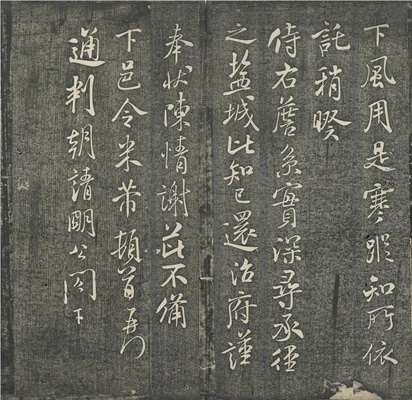 下風用是寒蹤知所依
託稍暌
侍右詹系實深尋承徑
之盐城比知已還治府謹
奉状陳情謝茲不備
下邑令米芾頓首再拜
通判朝請明公閣下